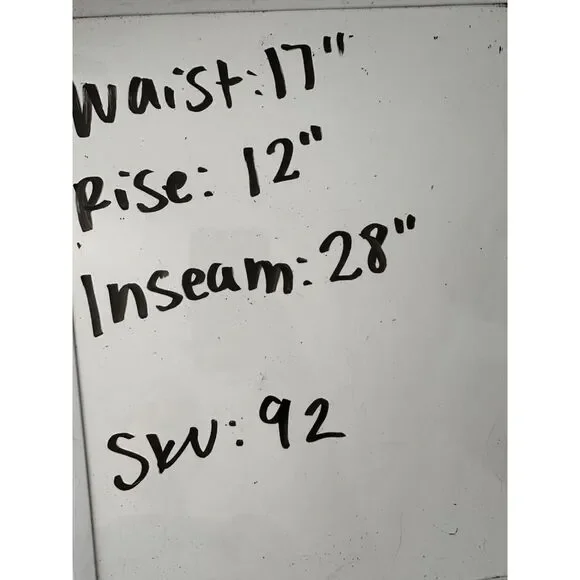 Waist: 17"
Rise: 12"
Inseam: 28"
SKU: 92